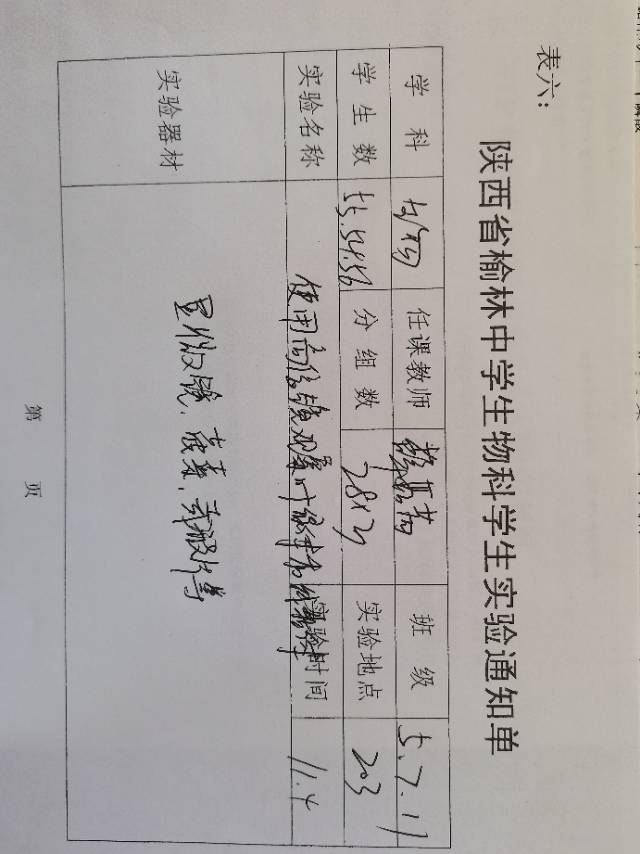 表六:
陕西省榆林中学生物科学生实验通知单
学科 生物 任课教师 班级 5.7.17
学生数 55.54.56 分组数 28×2 实验地点 203
实验名称 使用高倍镜观察叶绿体和 实验时间 11.4
实验器材 显微镜、菠菜、载玻片等
第 页